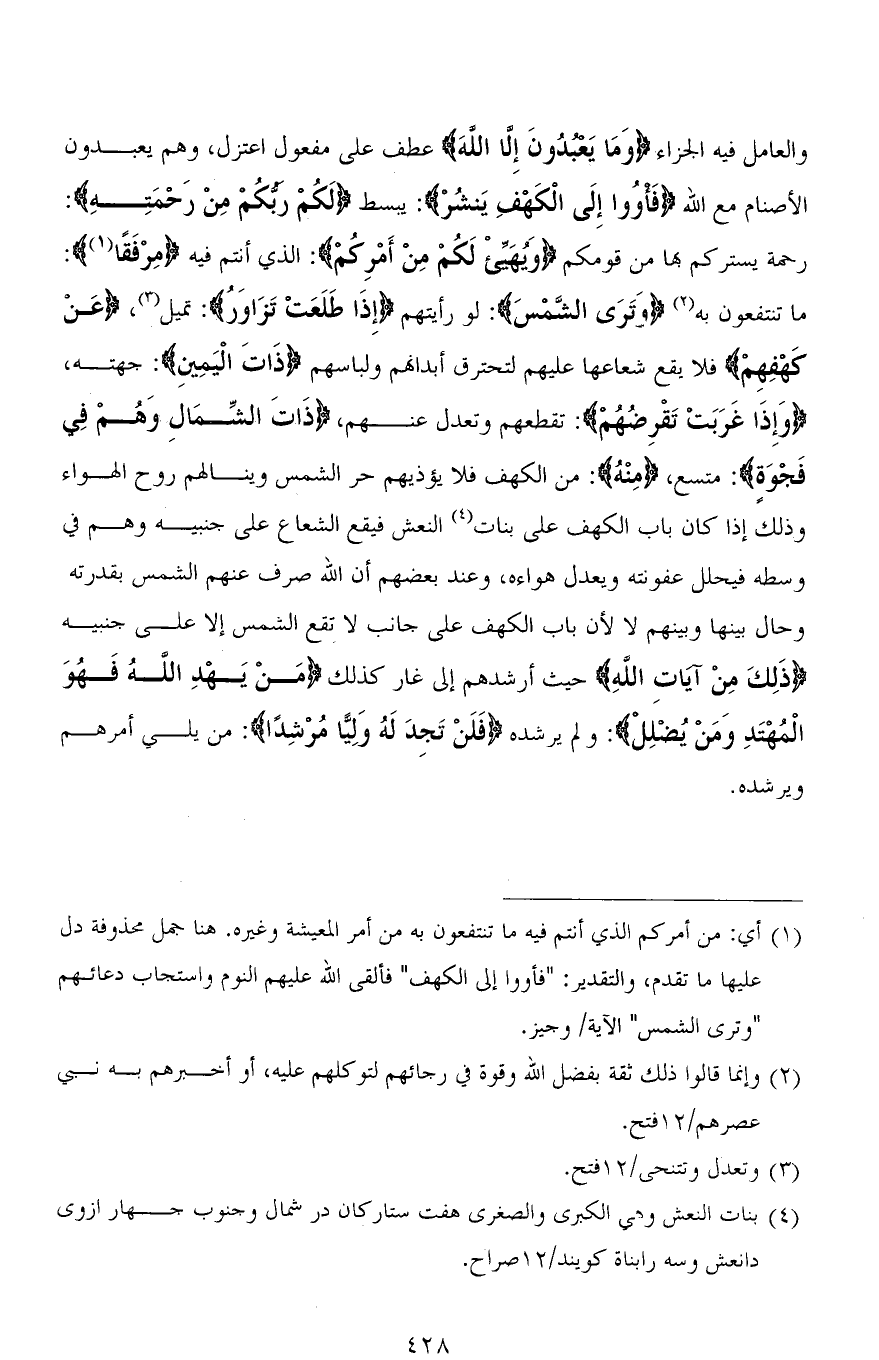 والعامل فيه الجزاء ﴿وَمَا يَعْبُدُونَ إِلَّا اللَّهَ﴾ عطف على مفعول اعتزل، وهم يعبدون
الأصنام مع الله ﴿فَأْوُوا إِلَى الْكَهْفِ يَنشُرْ﴾: يبسط ﴿لَكُمْ رَبُّكُمْ مِنْ رَحْمَتِهِ﴾:
رحمة يستركم بها من قومكم ﴿وَيُهَيِّئْ لَكُمْ مِنْ أَمْرِكُمْ﴾: الذي أنتم فيه ﴿مِرْفَقًا(١)﴾:
ما تنتفعون به(٢) ﴿وَتَرَى الشَّمْسَ﴾: لو رأيتهم ﴿إِذَا طَلَعَتْ تَزَاوَرُ﴾: تميل(٣)، ﴿عَنْ
كَهْفِهِمْ﴾ فلا يقع شعاعها عليهم لتحترق أبدانهم ولباسهم ﴿ذَاتَ الْيَمِينِ﴾: جهته،
﴿وَإِذَا غَرَبَتْ تَقْرِضُهُمْ﴾: تقطعهم وتعدل عنهم، ﴿ذَاتَ الشِّمَالِ وَهُمْ فِي
فَجْوَةٍ﴾: متسع، ﴿مِنْهُ﴾: من الكهف فلا يؤذيهم حر الشمس وينالهم روح الهواء
وذلك إذا كان باب الكهف على بنات(٤) النعش فيقع الشعاع على جنبيه وهم في
وسطه فيحلل عفونته ويعدل هواءه، وعند بعضهم أن الله صرف عنهم الشمس بقدرته
وحال بينها وبينهم لا لأن باب الكهف على جانب لا تقع الشمس إلا على جنبيه
﴿ذَلِكَ مِنْ آيَاتِ اللَّهِ﴾ حيث أرشدهم إلى غار كذلك ﴿مَنْ يَهْدِ اللَّهُ فَهُوَ
الْمُهْتَدِ وَمَنْ يُضْلِلْ﴾: ولم يرشده ﴿فَلَنْ تَجِدَ لَهُ وَلِيًّا مُرْشِدًا﴾: من يلي أمرهم
ويرشده.
(١) أي: من أمركم الذي أنتم فيه ما تنتفعون به من أمر المعيشة وغيره. هنا جمل محذوفة دل
عليها ما تقدم، والتقدير: "فأووا إلى الكهف" فألقى الله عليهم النوم واستجاب دعائهم
"وترى الشمس" الآية/ وجيز.
(٢) وإنما قالوا ذلك ثقة بفضل الله وقوة في رجائهم لتوكلهم عليه، أو أخبرهم به نبي
عصرهم/١٢فتح.
(٣) وتعدل وتتنحى/١٢فتح.
(٤) بنات النعش وهي الكبرى والصغرى هفت ستاركان در شمال وجنوب جهار ازوى
دانعش وسه رابناة كويند/١٢صراح.
٤٢٨